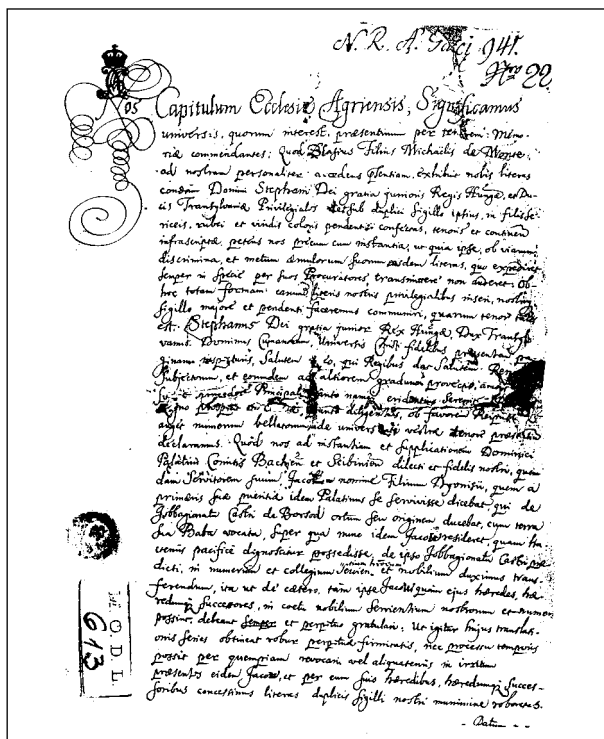 N. R. A. Fasci 941.
Nro 22
Nos Capitulum Ecclesiæ Agriensis, Significamus
universis, quorum interest, præsentium per tenorem: Memo-
riæ commendantes; Quod Blasius Filius Michaelis de Monte,
ad nostram personaliter accedens præsentiam, exhibuit nobis literas
condam Domini Stephani Dei gratia junioris Regis Hungæ, et Du-
cis Transylvaniæ Privilegiales sub duplici Sigillo ipsius, in filis se-
riceis, rubei et viridis coloris pendenti confectas, tenoris et continen
infrascriptæ, petens nos precum cum instantia, ut quia ipse, ob viarum
discrimina, et metum æmulorum suorum easdem literas, quo expediret
semper in specie per suos Procuratores, transmittere non auderet, ob
hoc totam formam earum literis nostris privilegialibus inseri, nostro
Sigillo majore et pendenti faceremus communiri, quarum tenor talis
est. Stephanus Dei gratia junior Rex Hungæ, Dux Transyl-
vanus. Dominus Cumanorum, Universis Christi fidelibus præsentem pa-
ginam inspecturis, Salutem in eo, qui Regibus dat Salutem.
Subjectorum, et eorundem ad altiorem graduum provectio,
Principali
diligentes, ob favorem
auget numerum bellatorum, inde universitati vestræ tenore præsentium
declaramus. Quod nos ad instantiam et supplicationem Dominici
Palatini Comitis Bachien et dilecti et fidelis nostri, quen-
dam Servitorem suum, Jacobum nomine Filium Dyonisii, quem a
primævis suæ pueritiæ idem Palatinus se servivisse dicebat qui de
Jobbagionatu Castri de Borsod ortum seu originem ducebat, cum terra
sua Baba vocata, super qua nunc idem Jacob resideret, quam ha-
ctenus pacifice dignoscitur possedisse, de ipso Jobbagionatu Castri præ-
dicti, in numerum et collegium Servien et nobilium duximus trans-
ferendum, ita ut de cætero, tam ipse Jacob quam ejus hæredes, hæ-
redumq Successores, in coetu nobilium Servientium nostrorum et numero
possint, debeant semper et perpetuo gratulari; Ut igitur hujus translati-
onis series obtineat robur perpetuæ firmitatis, nec processu temporis
possit per quempiam revocari vel aliquatenus in irritum
præsentes eidem Jacob, et per eum suis hæredibus, hæredumq succes-
soribus concessimus literas duplicis sigilli nostri munimine roboratas.
Datum
M. O. D. L.
613